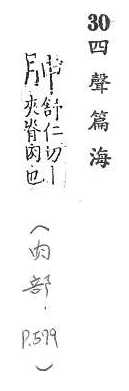 30四聲篇海
胂
舒仁切丨
夾脊肉也
(肉部 P.579)